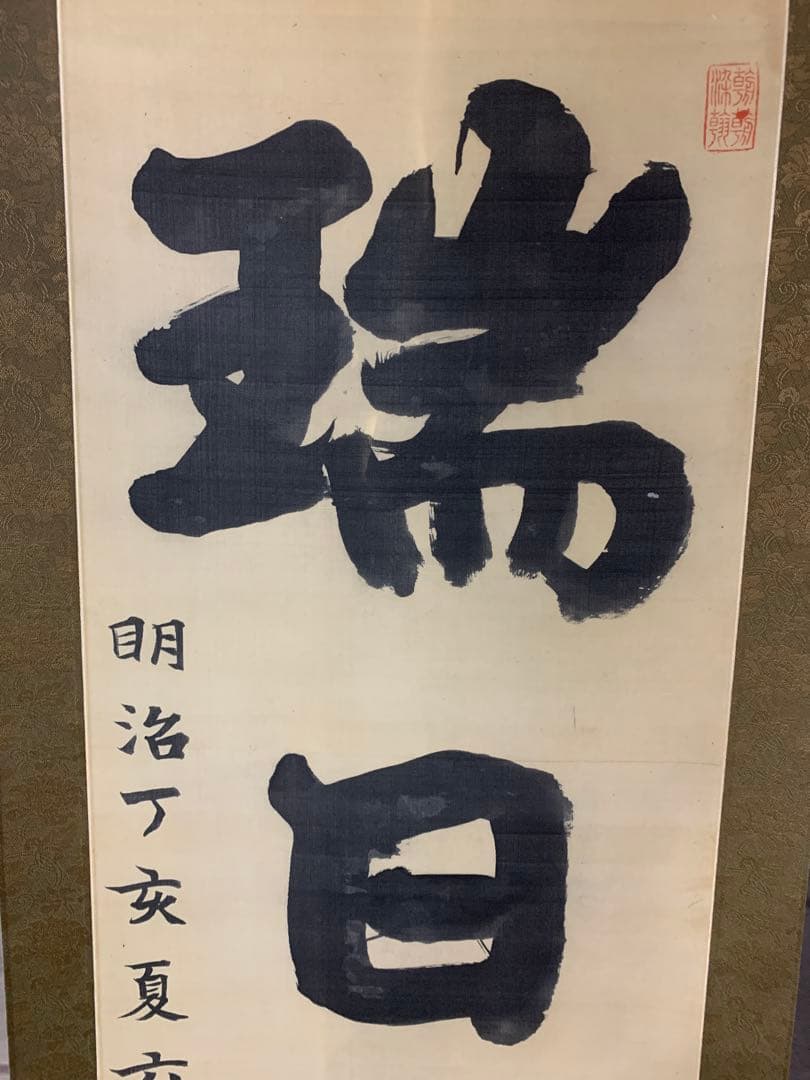 瑞日
明治丁亥夏